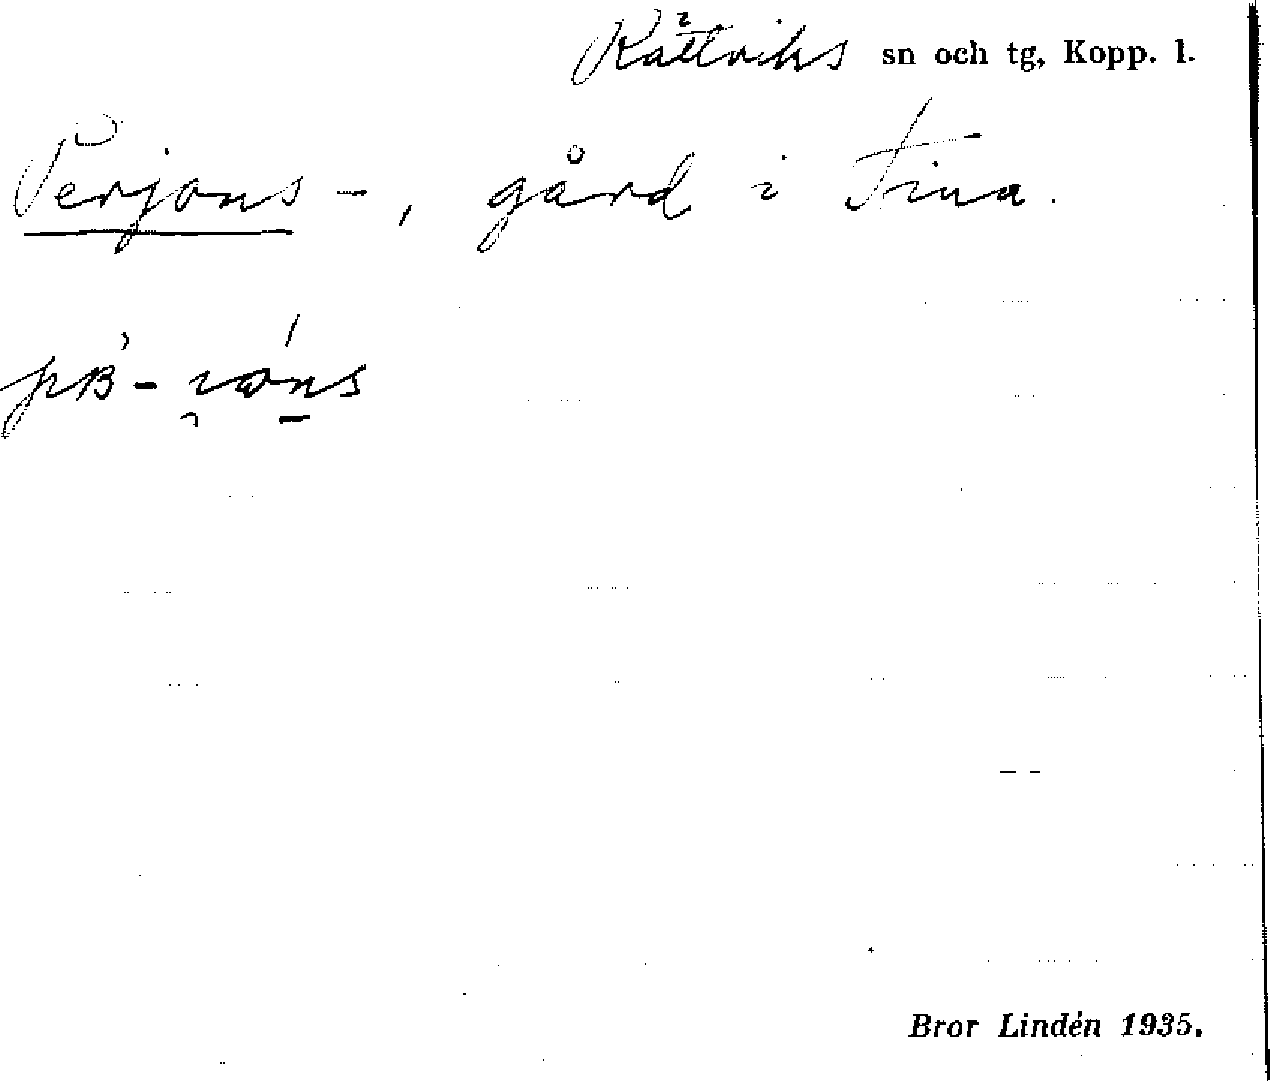 Rättviks sn och tg, Kopp. l.
Perjons-, gård i Tina.
Bror Lindén 1935.